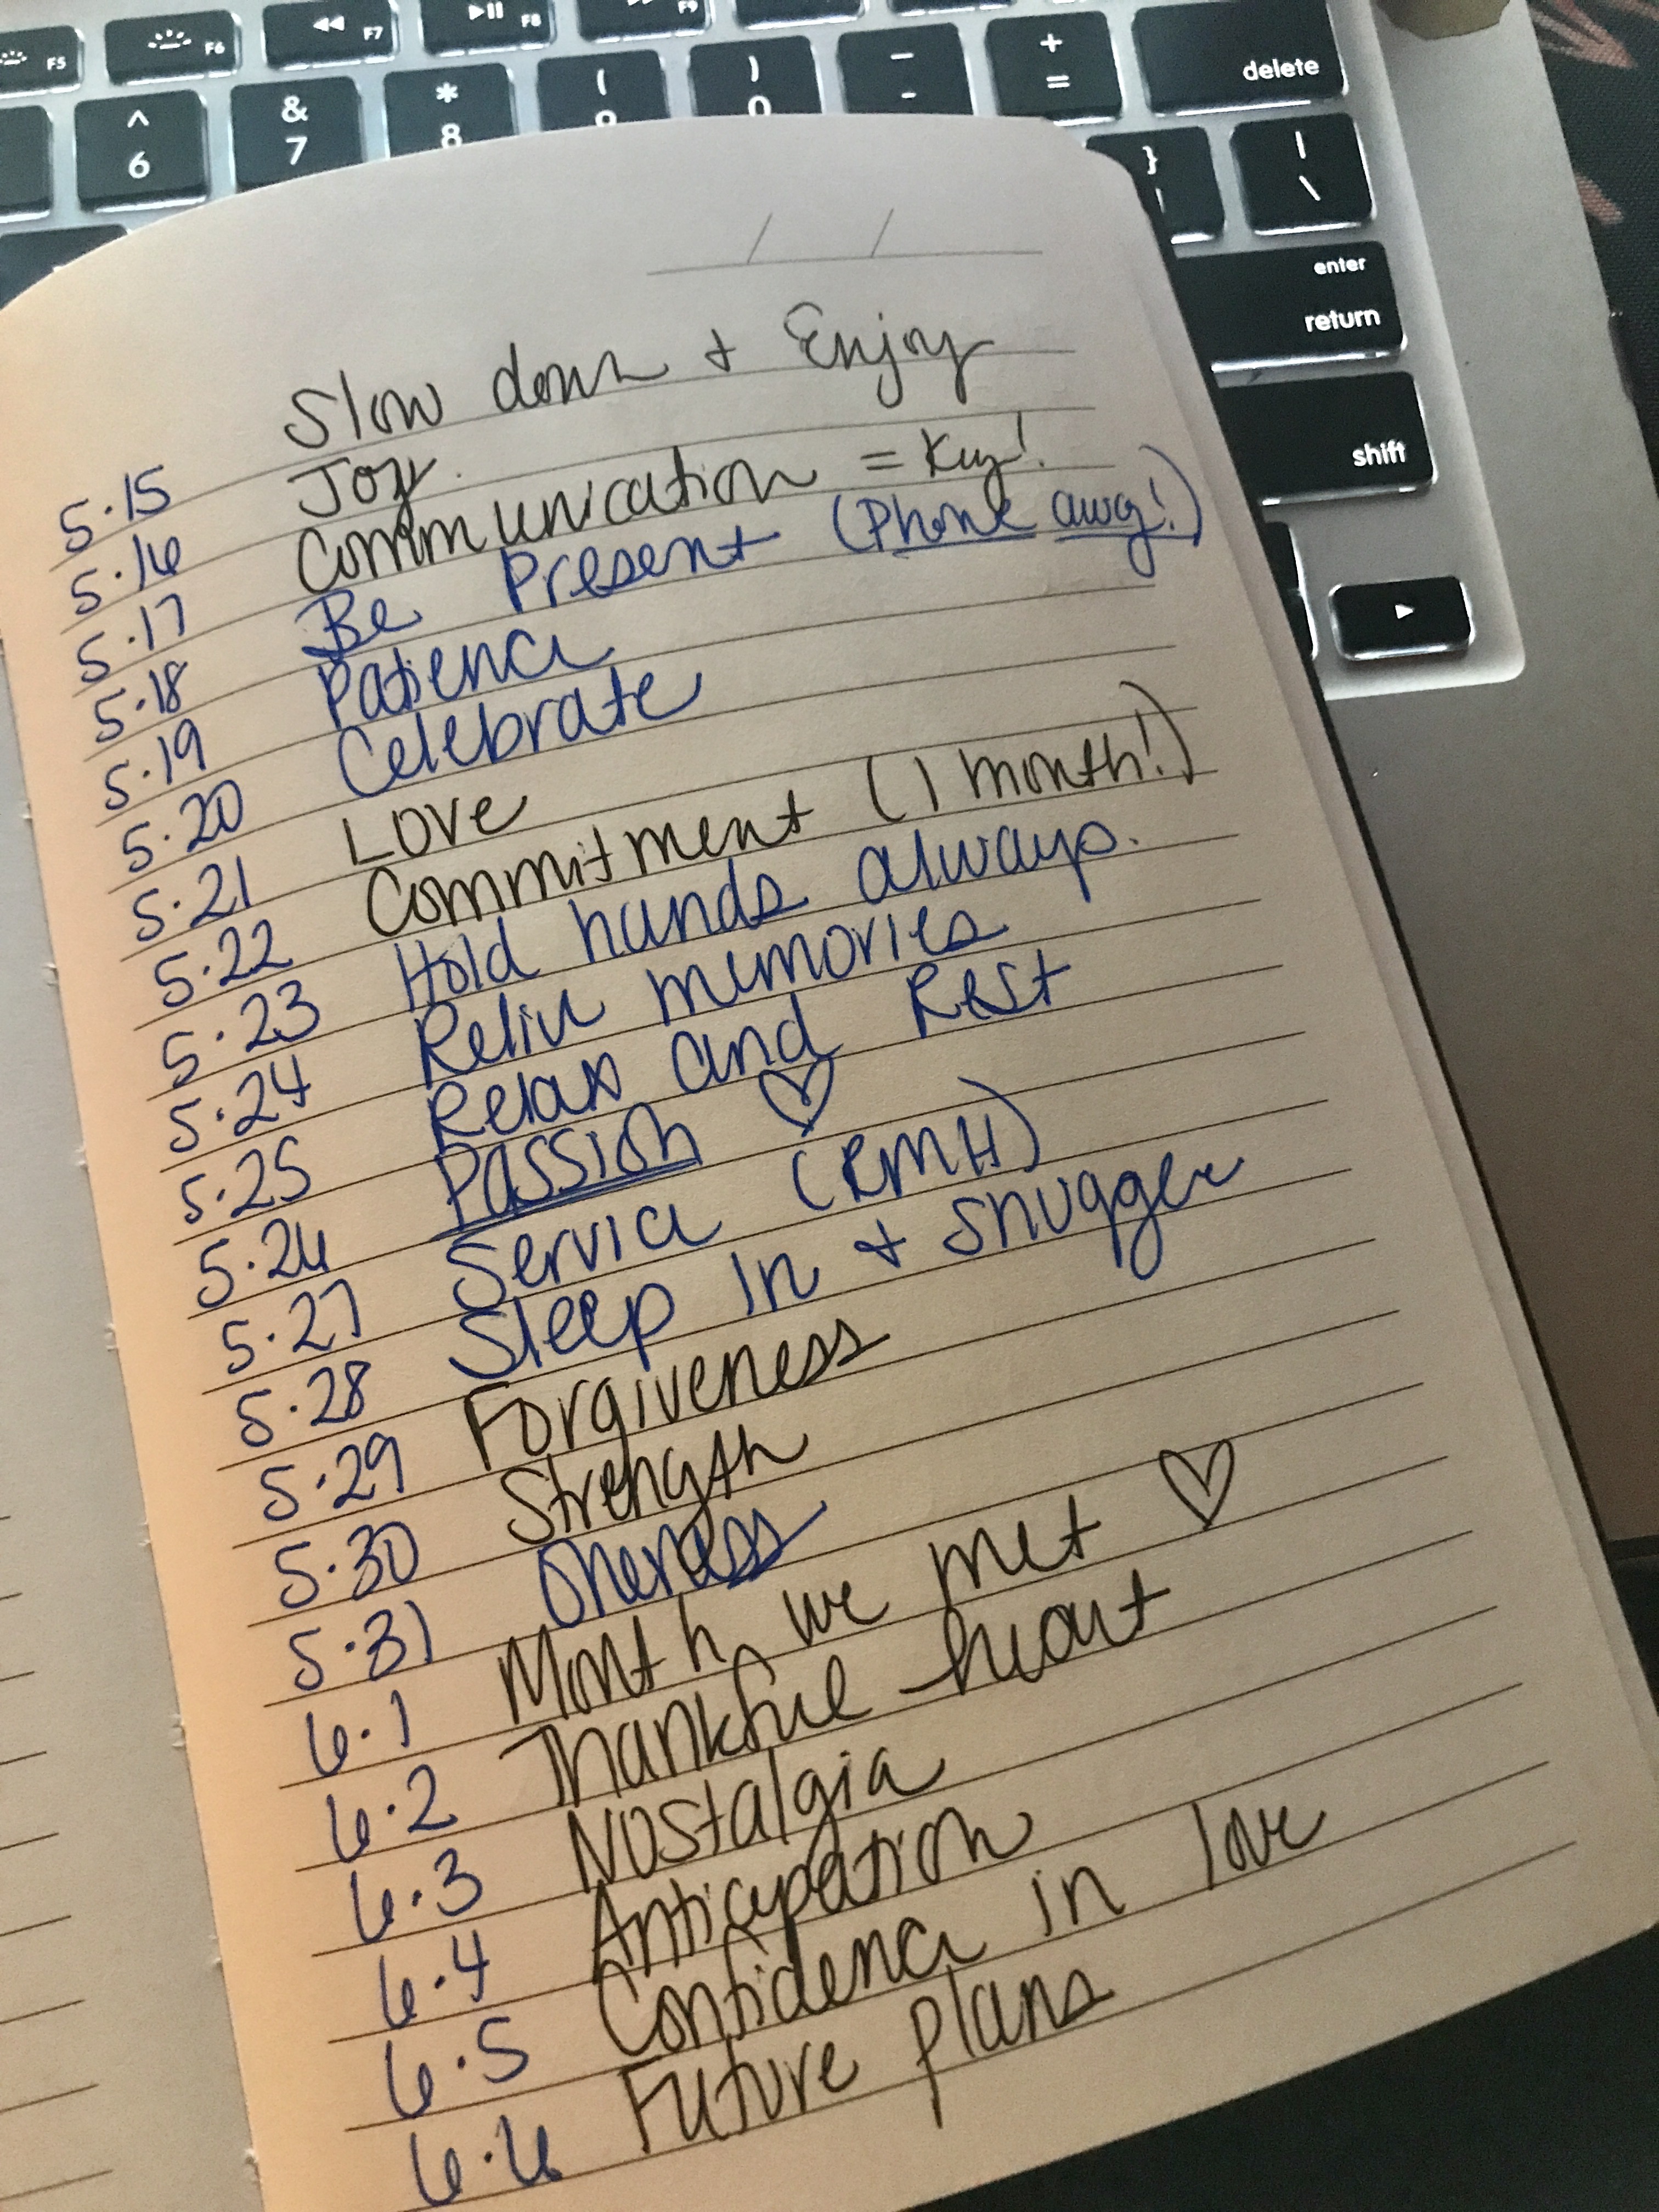 F5 F6 F7 F8 F9
^ & * ( ) _ + delete
6 7 8 9 0 - =
} |
\
enter
return
shift
/ /
5.15 Slow down + Enjoy
5.16 Joy.
5.17 Communication = Key!
5.18 Be Present (Phone away!)
5.19 Patience
5.20 Celebrate
5.21 Love
5.22 Commitment (1 month!)
5.23 Hold hands always.
5.24 Relive memories
5.25 Relax and Rest
5.26 Passion ♡
5.27 Service (RMH)
5.28 Sleep in + snuggle
5.29 Forgiveness
5.30 Strength
5.31 Oneness
6.1 Month we met ♡
6.2 Thankful heart
6.3 Nostalgia
6.4 Anticipation
6.5 Confidence in love
6.6 Future plans